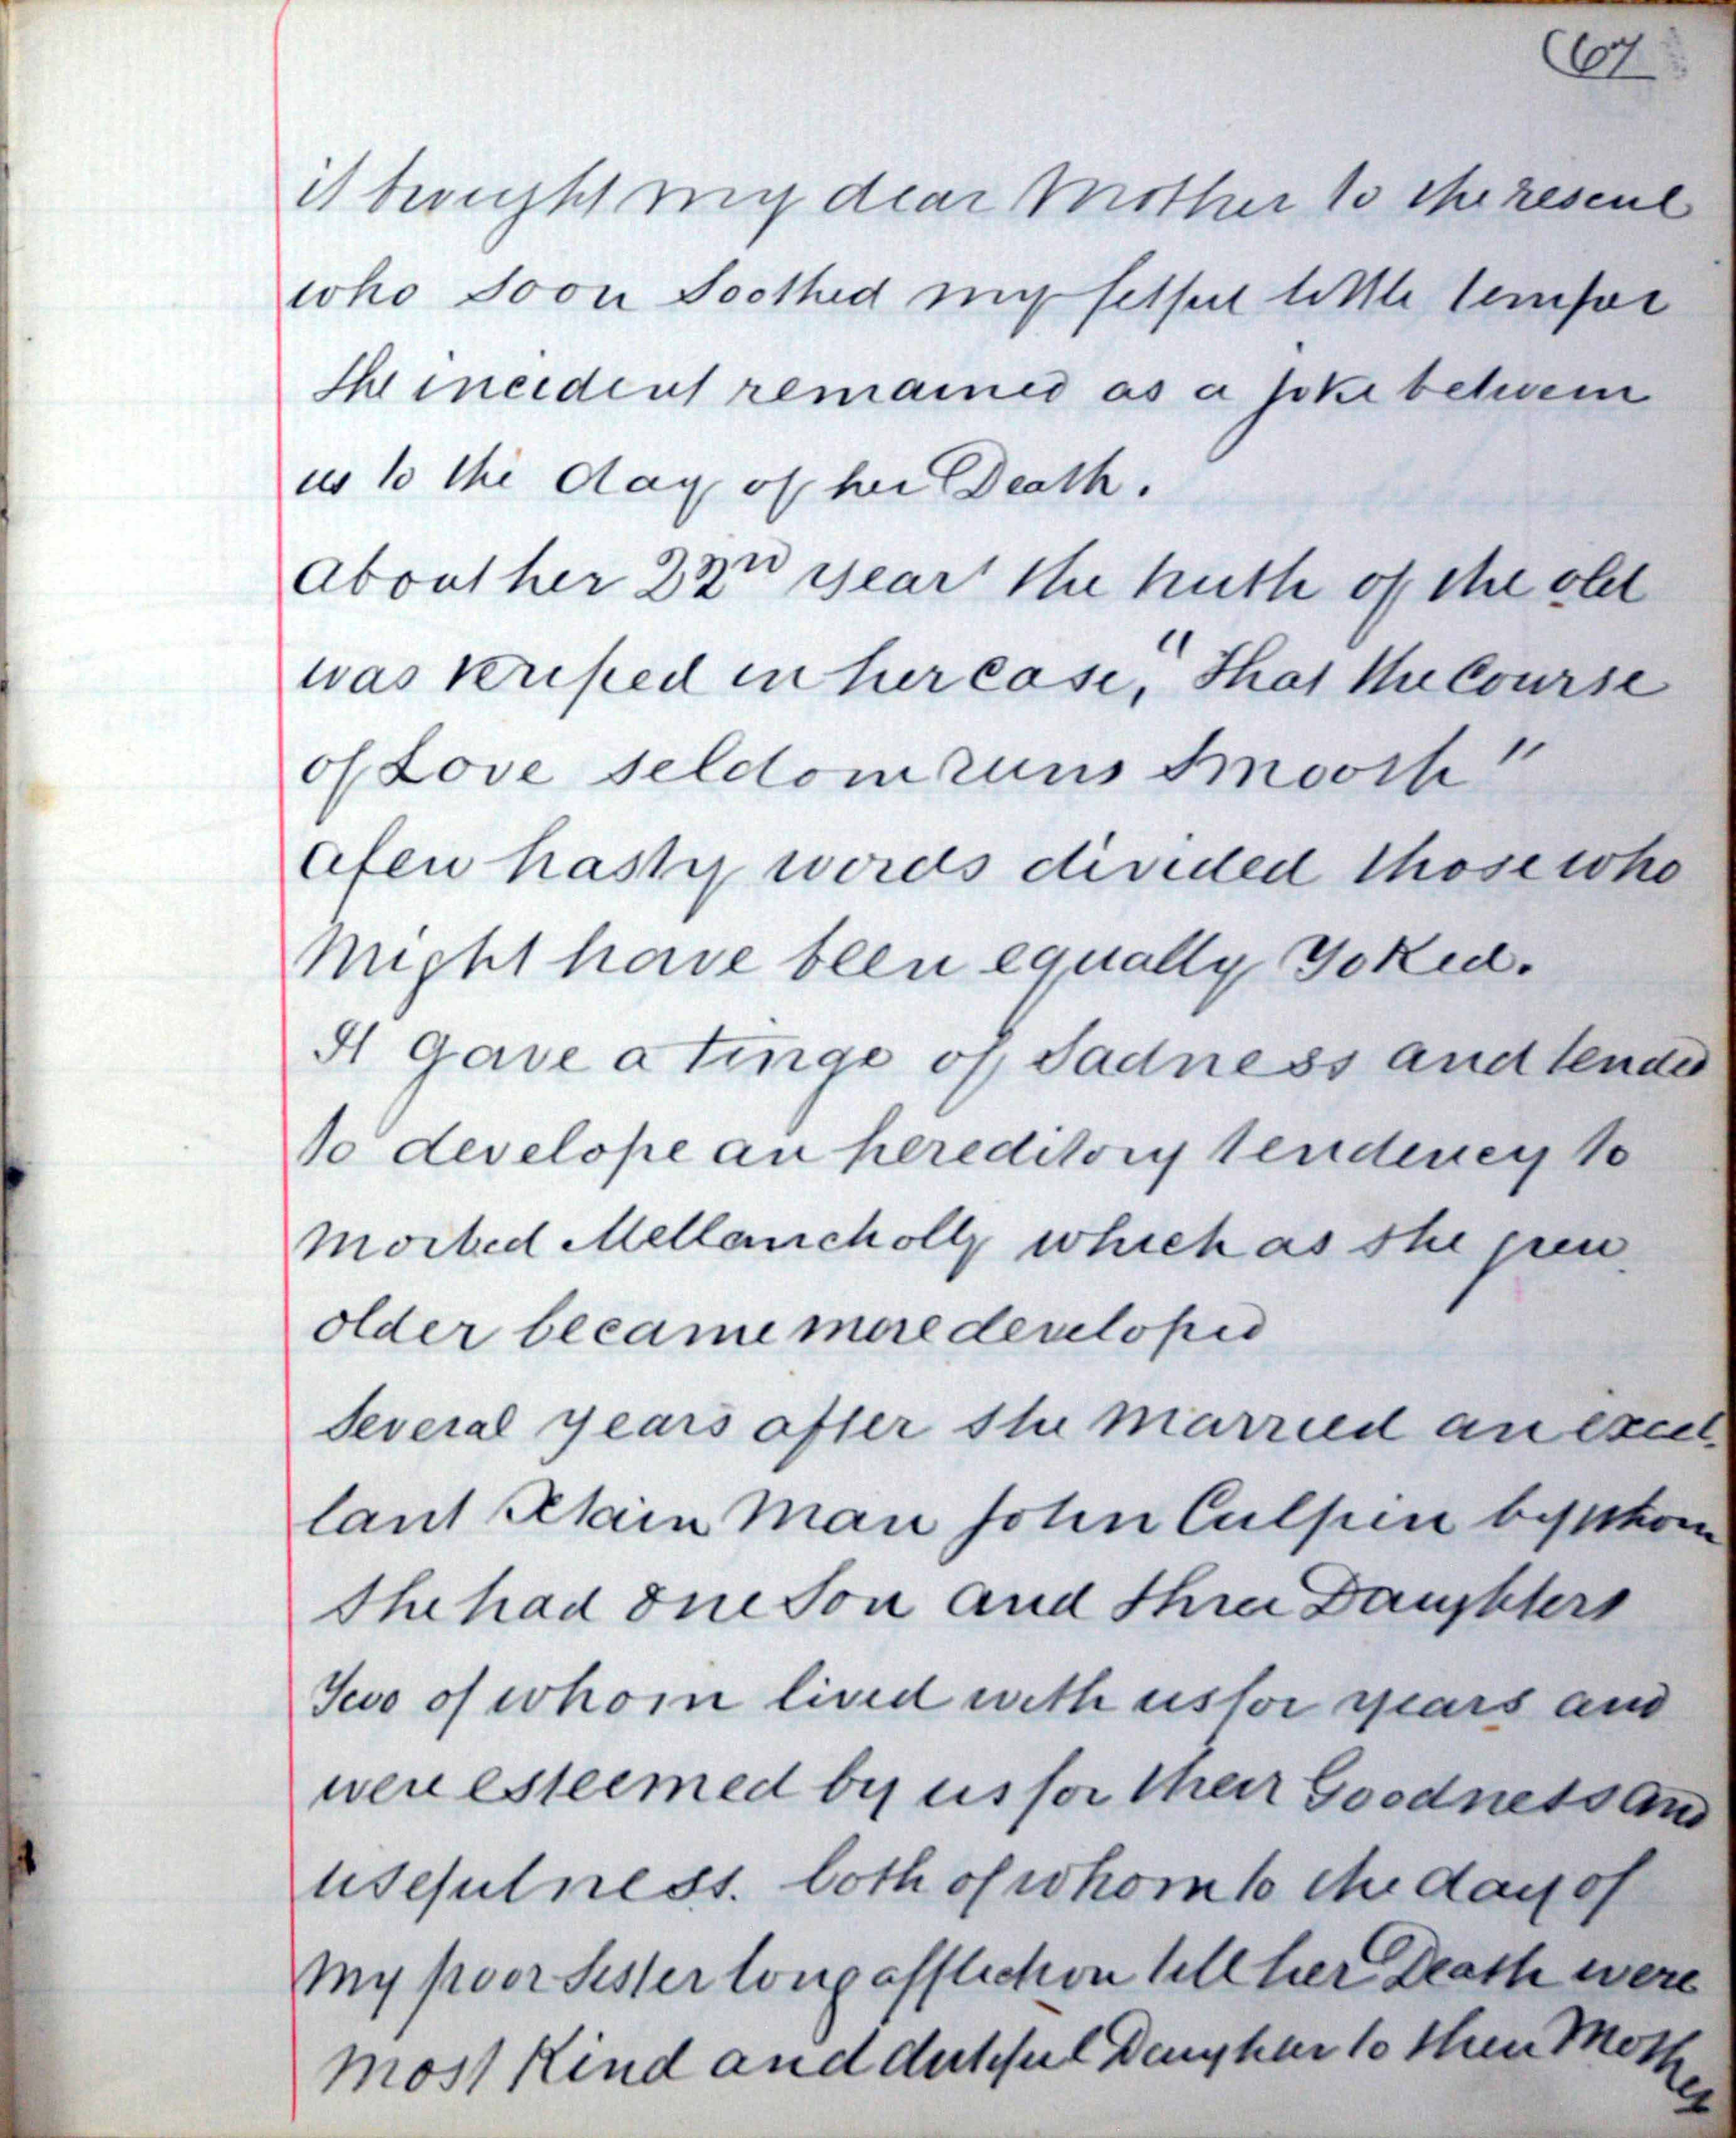 (67
it brought my dear Mother to the rescue
who soon Soothed my fitful little temper
the incident remained as a joke between
us to the day of her Death.
about her 22nd year the truth of the old
was verified in her case, "That the Course
of Love seldom runs Smooth"
a few hasty words divided those who
Might have been equally Yoked.
It gave a tinge of Sadness and tended
to develope an hereditory tendency to
Morbid Mellancholly which as she grew
older became more developed
Several years after she Married an excel-
lant Plain Man John Culpin by whom
she had one Son and three Daughters
Two of whom lived with us for years and
were esteemed by us for their Goodness and
usefulness. both of whom to the day of
My poor Sister long affliction till her Death were
most Kind and dutiful Daughter to their Mother